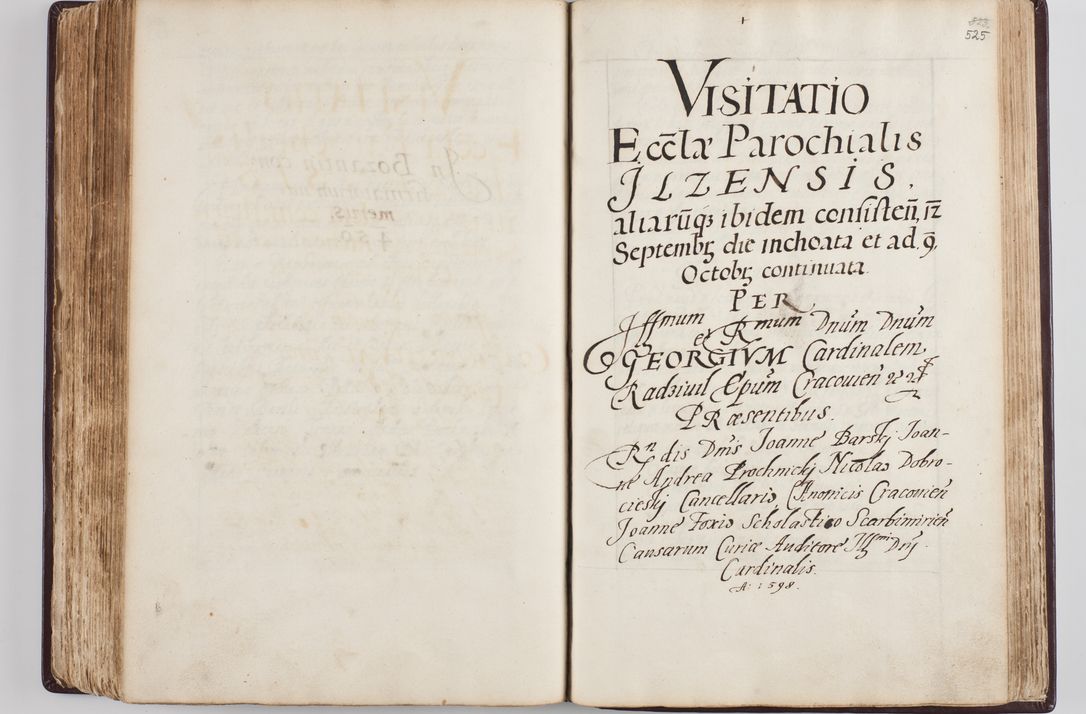 523
525
VISITATIO
Eccłæ Parochialis
ILZENSIS,
aliarūq₃ ibidem consisteñ, 12
Septembꝫ die inchoata et ad 9,
Octobꝫ continuata
PER
Illmum et Rmum Dnum Dnum
GEORGIVM Cardinalem
Radziuil Epum Cracouien
PRæsentibus.
Rndis Dnis Joanne Barskj Joan-
ne Andrea Prochnickj Nicolao Dobro-
cieskj Cancellario Canonicis Cracouień
Joanne Foxio Scholastico Scarbimirień
Causarum Curiæ Auditore Illmi Dnj
Cardinalis.
A: 1598.
In Bozantin con
merus.